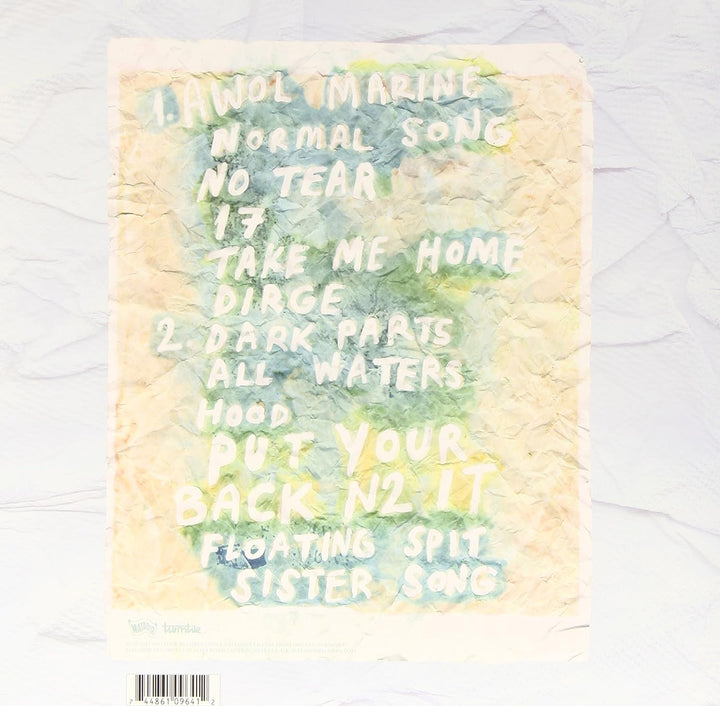 1. AWOL MARINE
NORMAL SONG
NO TEAR
17
TAKE ME HOME
DIRGE
2. DARK PARTS
ALL WATERS
HOOD
PUT YOUR
BACK N2 IT
FLOATING SPIT
SISTER SONG
MATADOR turnstile
7 44861 09641 2